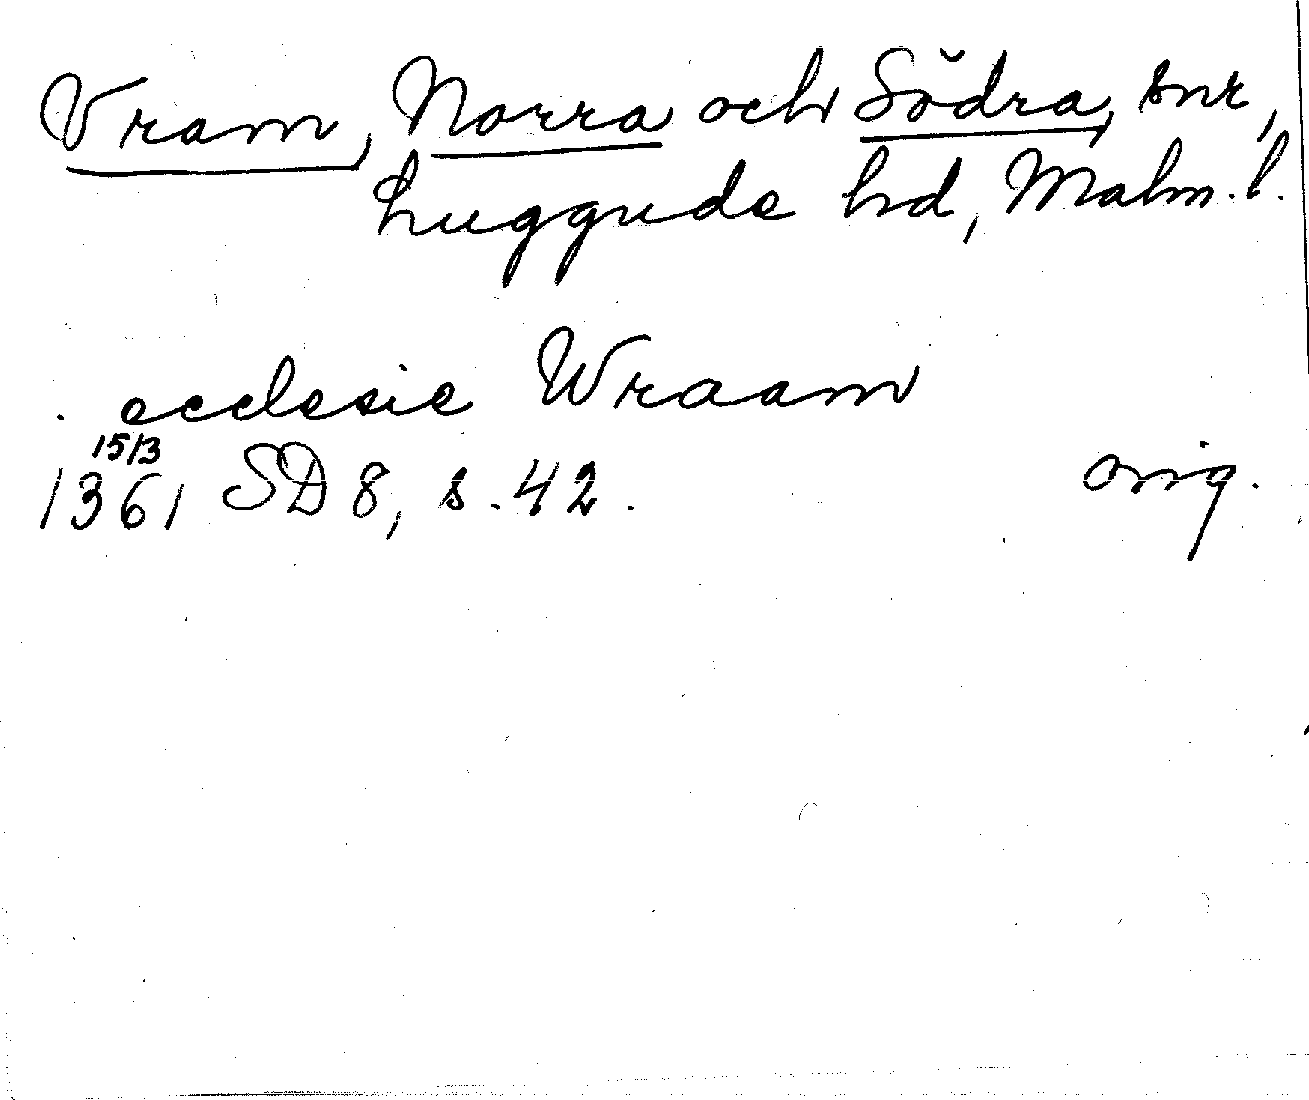 Vram, Norra och Södra, snr,
Luggude hd, Malm. l.
ecclesie Wraam
15/3
1361 SD 8, s. 42. orig.